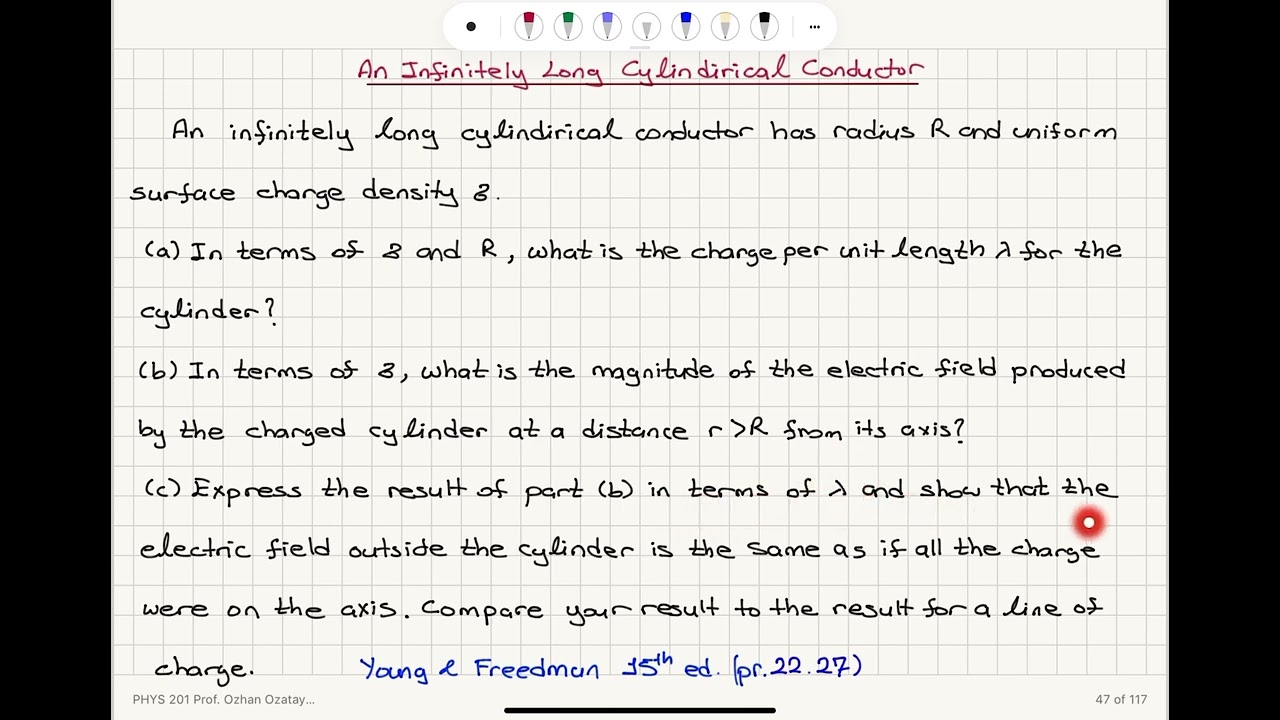 An Infinitely Long Cylindirical Conductor
An infinitely long cylindirical conductor has radius R and uniform
surface charge density Ƨ.
(a) In terms of Ƨ and R, what is the charge per unit length λ for the
cylinder?
(b) In terms of Ƨ, what is the magnitude of the electric field produced
by the charged cylinder at a distance r >R from its axis?
(c) Express the result of part (b) in terms of λ and show that the
electric field outside the cylinder is the same as if all the charge
were on the axis. Compare your result to the result for a line of
charge. Young & Freedman 15th ed. (pr.22.27)
PHYS 201 Prof. Ozhan Ozatay... 47 of 117